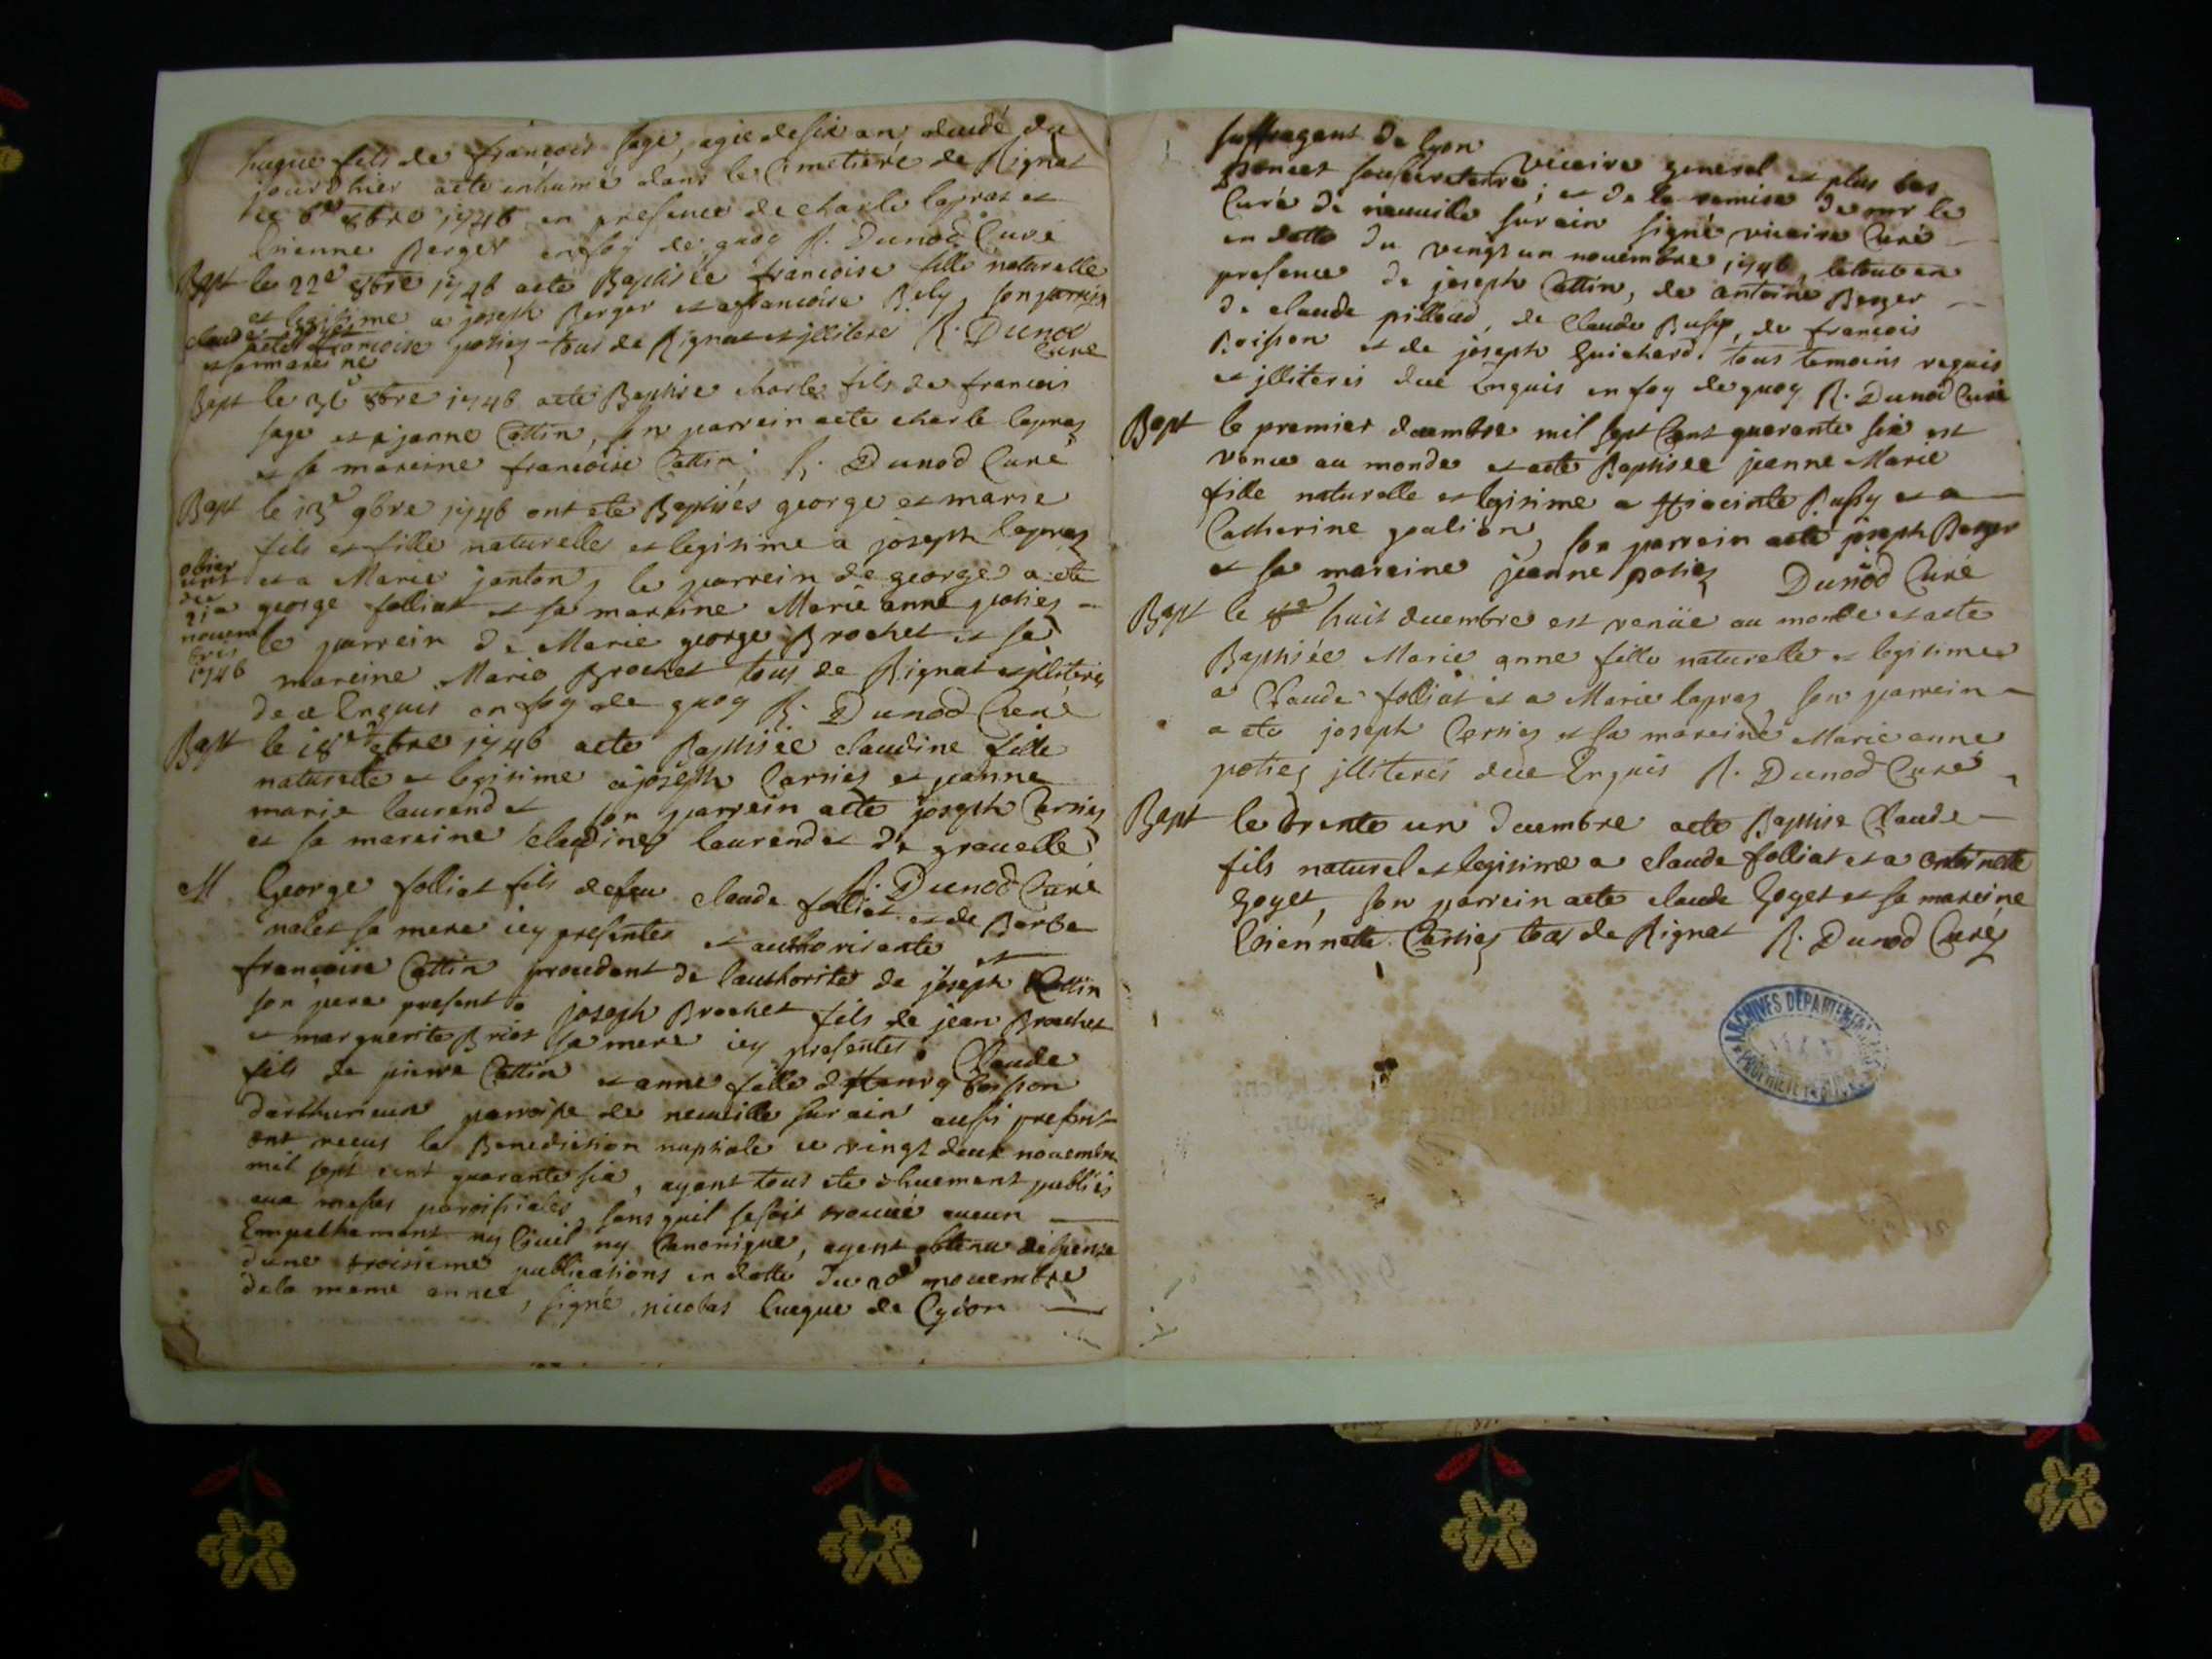 hugue fils de françois sage, agé de six an decedé du
jourdhier aeté inhumé dans le Cimetiere de Rignat
ce 6e 8bre 1746 en presence de charle lapras et
Etienne Berger en foy de quoy R. Dunod Curé
Bapt le 22e 8bre 1746 aeté Baptisée francoise fille naturelle
et legitime a joseph Berger et a francoise Bely, son parrein
aeté francoise potiez tous de Rignat et jlliteré R. Dunod
et sa mareine Curé
Bapt le 31e 8bre 1746 aeté Baptise charle fils de francois
sage et a janne Cattin, son parrein aeté charle lapraz
et sa mareine francoise Cattin, R. Dunod Curé
Bapt le 13e 9bre 1746 ont eté Baptisés george et marie
fils et fille naturelles et legitime a joseph lapraz
et a Marie janton, le parrein de george a eté
george folliat et sa mareine Marie anne potiez
le parrein de Marie george Brochet et sa
mareine Marie Brochet tous de Rignat et jlliterés
de ce Enquis en foy de quoy R. Dunod Curé
obier
unt
des
21e
novem
bres
1746
Bapt le 18e 1746 aeté Baptisée claudine fille
naturelle et legitime a joseph Carriez et jeanne
marie laurendet son parrein aeté joseph Carriez
et sa mareine claudine laurendet de grauelle
R. Dunod Curé
M George folliat fils defeu claude folliat et de Barbe
nalet sa mere icy presentes et authorisante et
francoise Cattin procedant de lauthorité de joseph Cattin
son pere present. joseph Brochet fils de jean Brochet
et marguerite Briot sa mere icy presentes. Claude
fils de pierre Cattin et anne fille d Henry boisson
parroisse de neuville sur ain aussi present
ont recus la Benediction nuptiale ce vingt deux novembre
mil sept cent quarante six, ayant tous eté dhuement publiés
aux messes paroissiales, sans quil se soit trouvé aucun
Empechement ny Civil ny Canonique, ayent obtenu dispense
dune troisieme publications en datte du 20e novembre
dela meme année, signé nicolas Eueque de Cydon
suffragant de lyon vicaire general et plus bas
poncet sousecretaire; et de la remise de mr le
Curé de neuville sur ain signé vicaire Curé
en datte du vingt un novembre 1746, letout en
presence de joseph Cattin, de antoine Berger
de claude pilloud, de Claude Bussy, de francois
Boisson et de joseph Guichard. tous temoins requis
et jlliterés due Enquis en foy de quoy R. Dunod Curé
Bapt le premier decembre mil sept Cent quarante six est
venue au monde et aeté Baptisée jeanne Marie
fille naturelle et legitime a Hiacinte Bussy et a
Catherine goalion, son parrein aeté joseph Berger
et sa mareine jeanne potiez Dunod Curé
Bapt le huit decembre est venüe au monde et aeté
Baptisée Marie anne fille naturelle et legitime
a Claude folliat et a Marie lapraz, son parrein
a eté joseph Carriez et sa mareine Marie anne
potiez jlliterés duce Enquis R. Dunod Curé
Bapt le trente un decembre aeté Baptisé Claude
fils naturel et legitime a claude folliat et a antoinette
goyet, son parrein aeté claude Goyet et sa mareine
Etiennette Carriez tous de Rignat R. Dunod Curé
ARCHIVES DEPARTEMENTALES
PROPRIETE PUBLIQUE